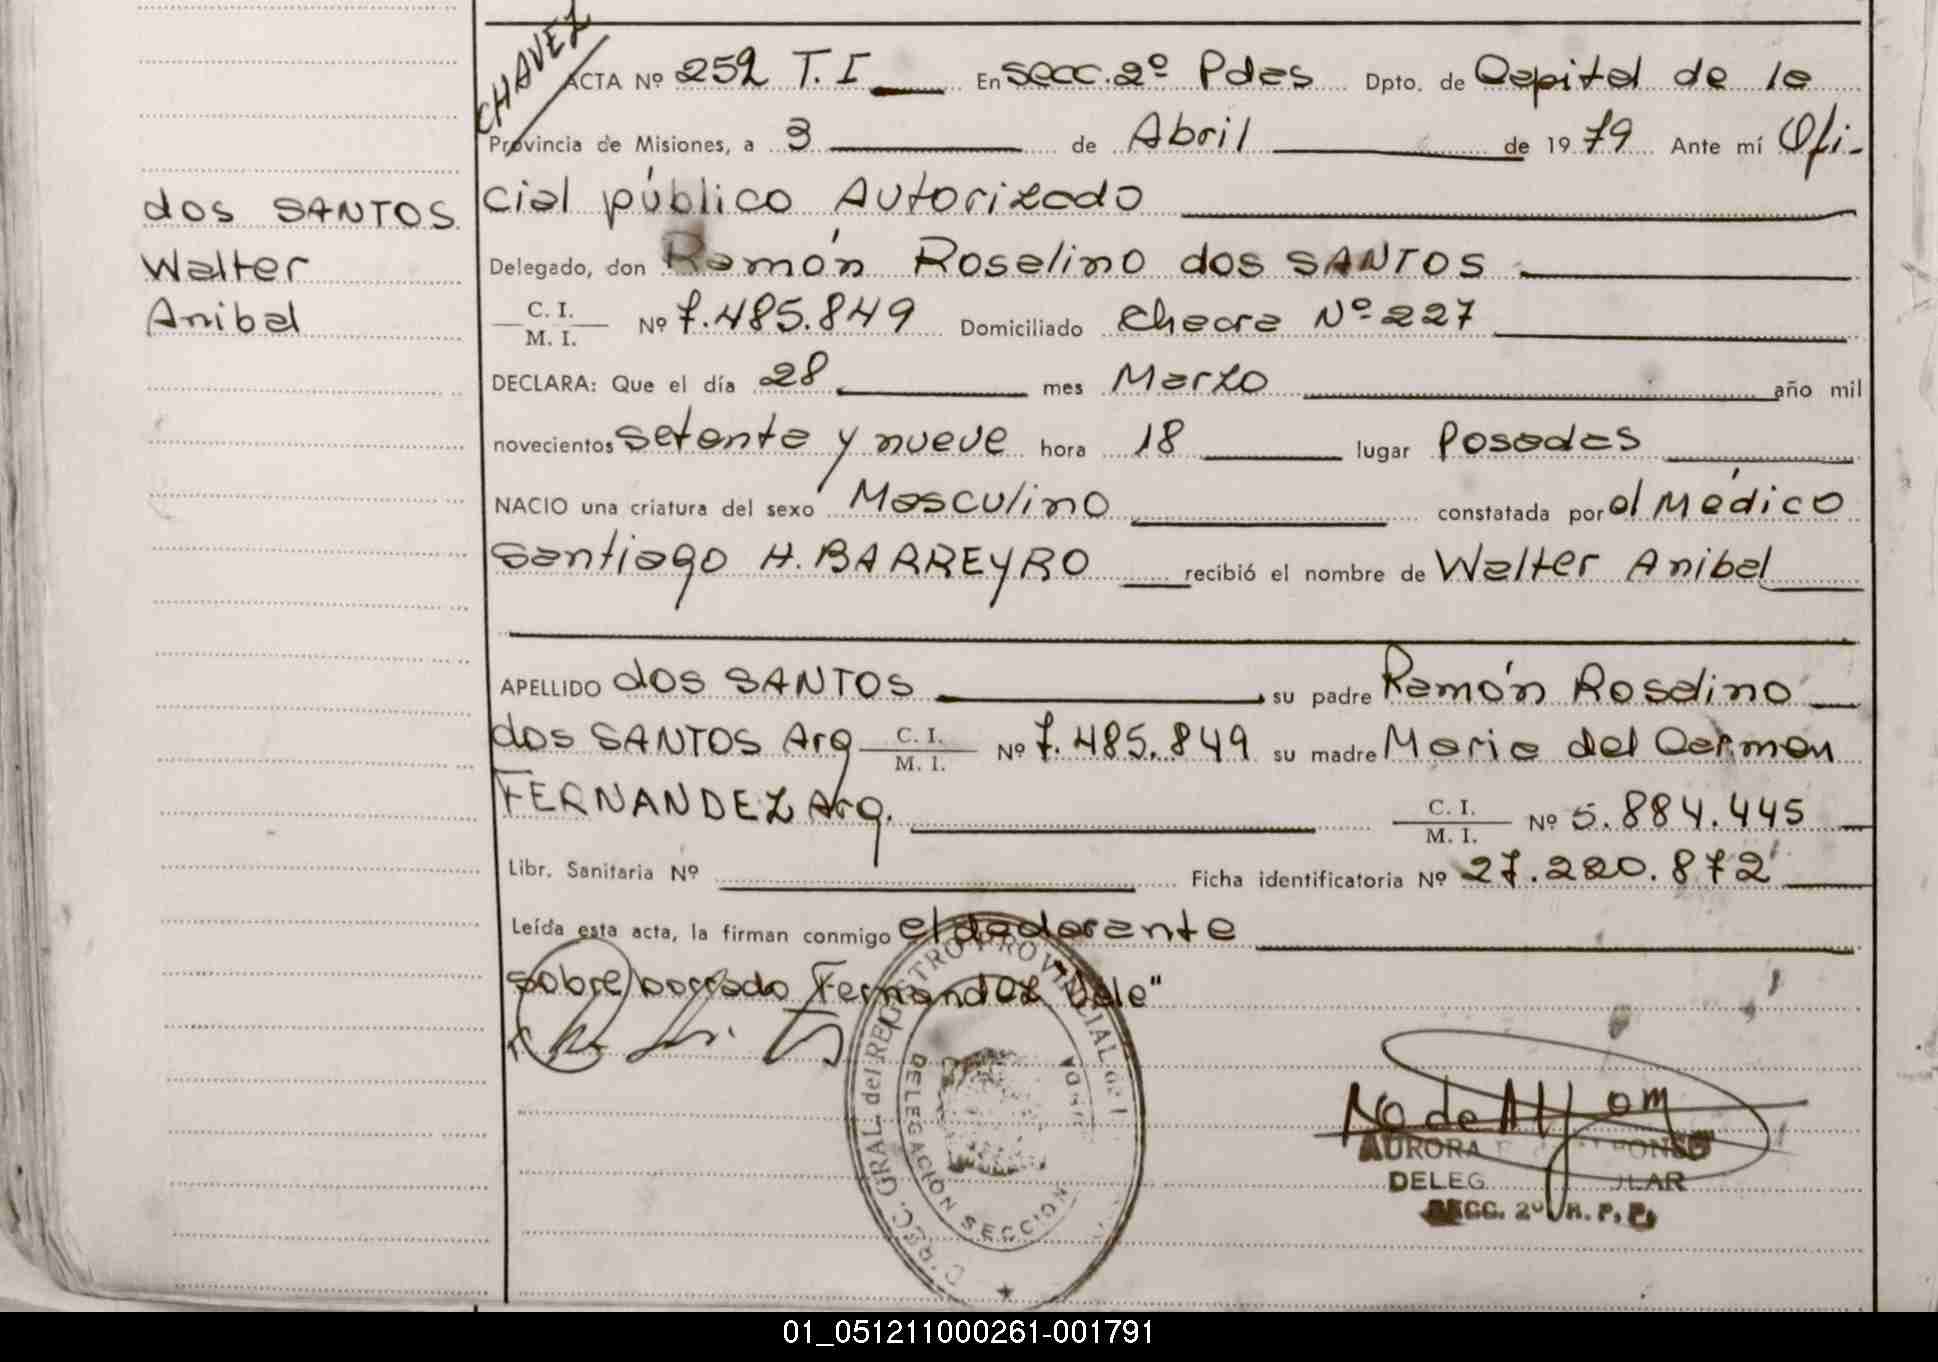 CHAVEZ
ACTA Nº 252 T. I En secc. 2º Pdas Dpto. de Capital de la
Provincia de Misiones, a 3 de Abril de 1979 Ante mí Ofi-
cial público Autorizado
dos SANTOS
Walter
Anibal
Delegado, don Ramón Roselino dos SANTOS
C. I.
M. I. Nº 7.485.849 Domiciliado Chacra Nº 227
DECLARA: Que el día 28 mes Marzo año mil
novecientos setenta y nueve hora 18 lugar Posadas
NACIO una criatura del sexo Masculino constatada por el Médico
Santiago H. BARREYRO recibió el nombre de Walter Anibal
APELLIDO dos SANTOS su padre Ramón Roselino
dos SANTOS Arg C. I.
M. I. Nº 7.485.849 su madre Maria del Carmen
FERNANDEZ Arg. C. I.
M. I. Nº 5.884.445
Libr. Sanitaria Nº Ficha identificatoria Nº 27.220.872
Leída esta acta, la firman conmigo el
sobre borrado Fernandez "Vale"
DIREC. GRAL. del REGISTRO PROVINCIAL de l
DELEGACION SECCION
AURORA
DELEG
SECC. 2º R. P. P.
01_051211000261-001791